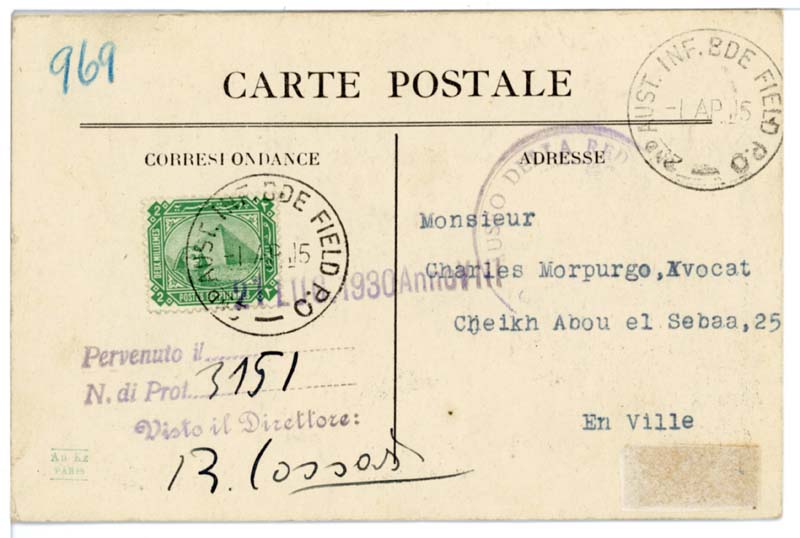 969
CARTE POSTALE
2ND AUST. INF. BDE FIELD P.O
-1 AP 15
CORRESPONDANCE
ADRESSE
MUSEO DELLA RED
2 2
DEUX MILLIEMES
AUST. INF. BDE FIELD P.O
-1 AP 15
21 LUG 1930 Anno VIII
Monsieur
Charles Morpurgo, Avocat
Cheikh Abou el Sebaa, 25
En Ville
Pervenuto il
N. di Prot. 3151
Visto il Direttore:
Au Kz
PARIS